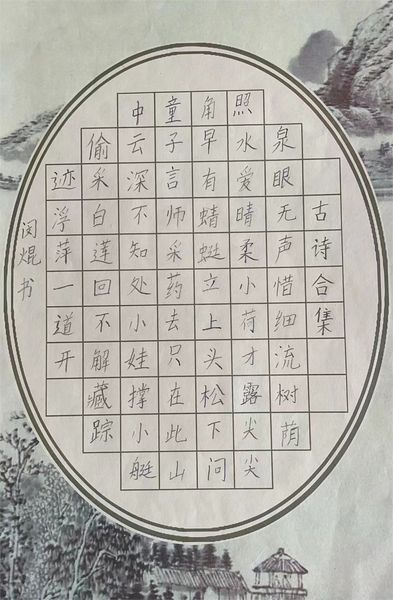 古诗合集
泉眼无声惜细流树荫
照水爱晴柔小荷才露尖尖
角早有蜻蜓立上头松下问
童子言师采药去只在此山
中云深不知处小娃撑小艇
偷采白莲回不解藏踪
迹浮萍一道开
闵焜书